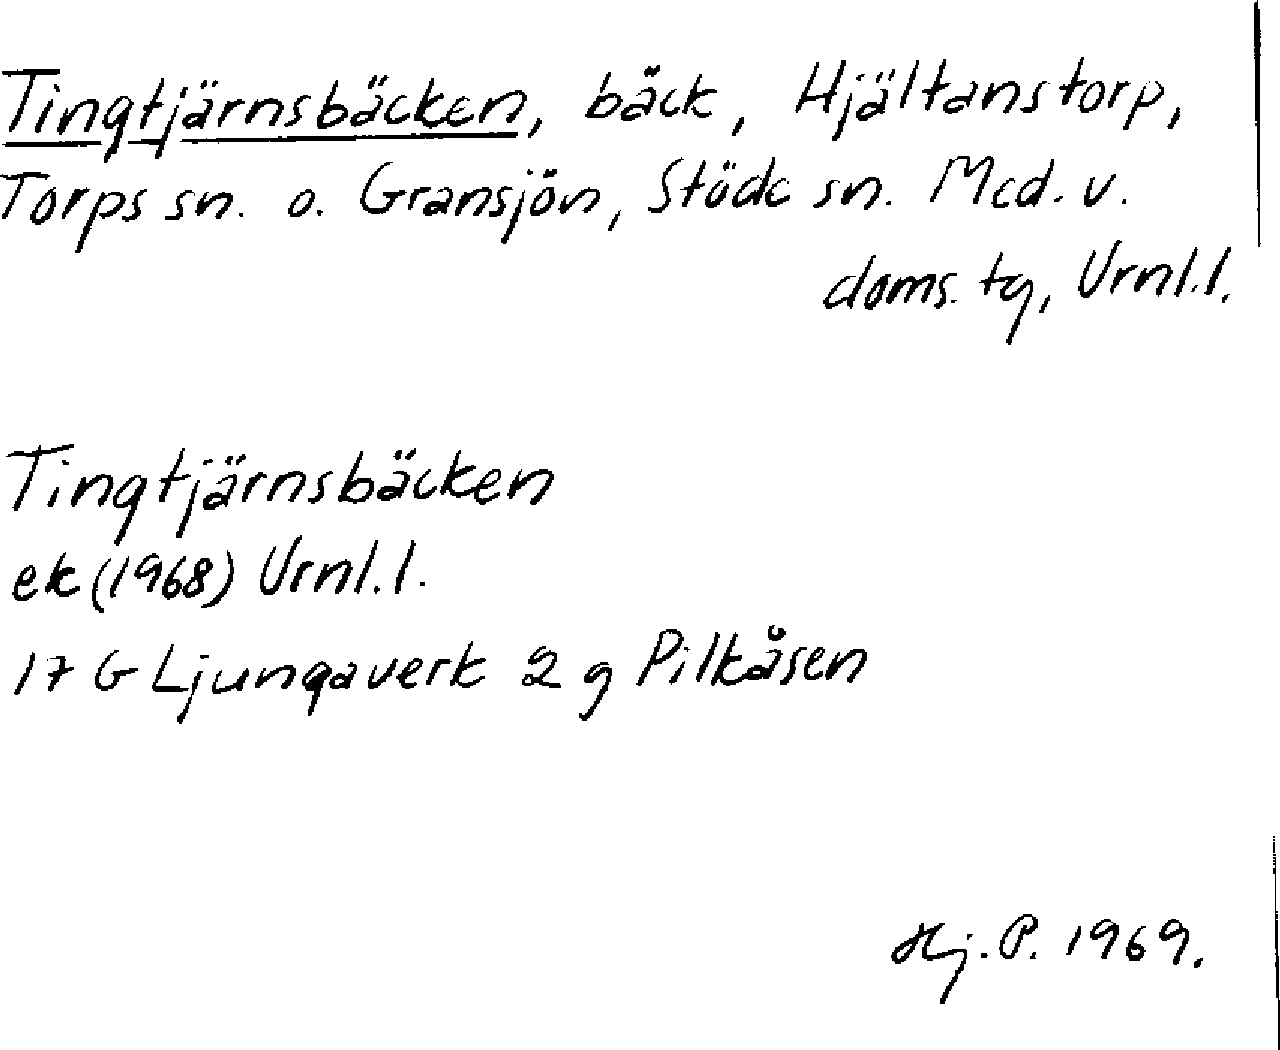 Tingtjärnsbäcken, bäck, Hjältanstorp,
Torps sn. o. Gransjön, Stöde sn. Med. v.
doms. tg, Vrnl. l.
Tingtjärnsbäcken
ek (1968) Vrnl. l.
17 G Ljungaverk 2 g Pilkåsen
Hj. P. 1969.